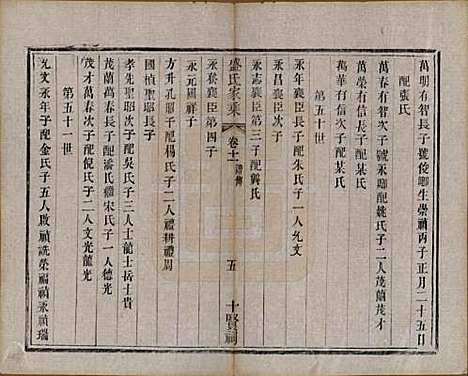 萬明有智長子號俊卿生崇禎丙子正月二十五日
配張氏
萬春有智次子號永卿配姚氏子二人茂蘭茂才
萬榮有信長子配某氏
萬華有信次子配某氏
第五十世
永年襄臣長子配朱氏子一人允文
永昌襄臣次子
永志襄臣第三子配龔氏
盛氏家乘
卷十一
五
十賢祠
永泰襄臣第四子
永元國祥子
方升孔聊子配楊氏子二人禮耕禮周
國楨聖聊長子
孝先聖聊次子配吳氏子三人士龍士岳士貴
茂蘭萬春長子配潘氏繼宋氏子一人德光
茂才萬春次子配倪氏子二人文光龍光
第五十一世
允文永年子配金氏子五人啟禎詵榮福禎永禎瑞